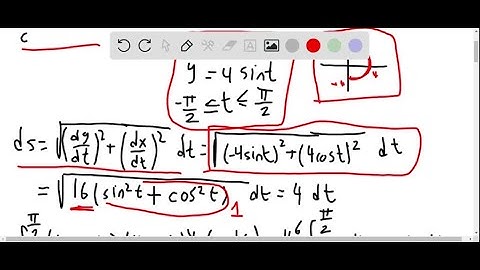 c
y = 4 sint
-π/2 ≤ t ≤ π/2
ds = √((dy/dt)² + (dx/dt)²) dt = √((-4sint)² + (4cost)²) dt
= √(16(sin²t + cos²t)) dt = 4 dt
1